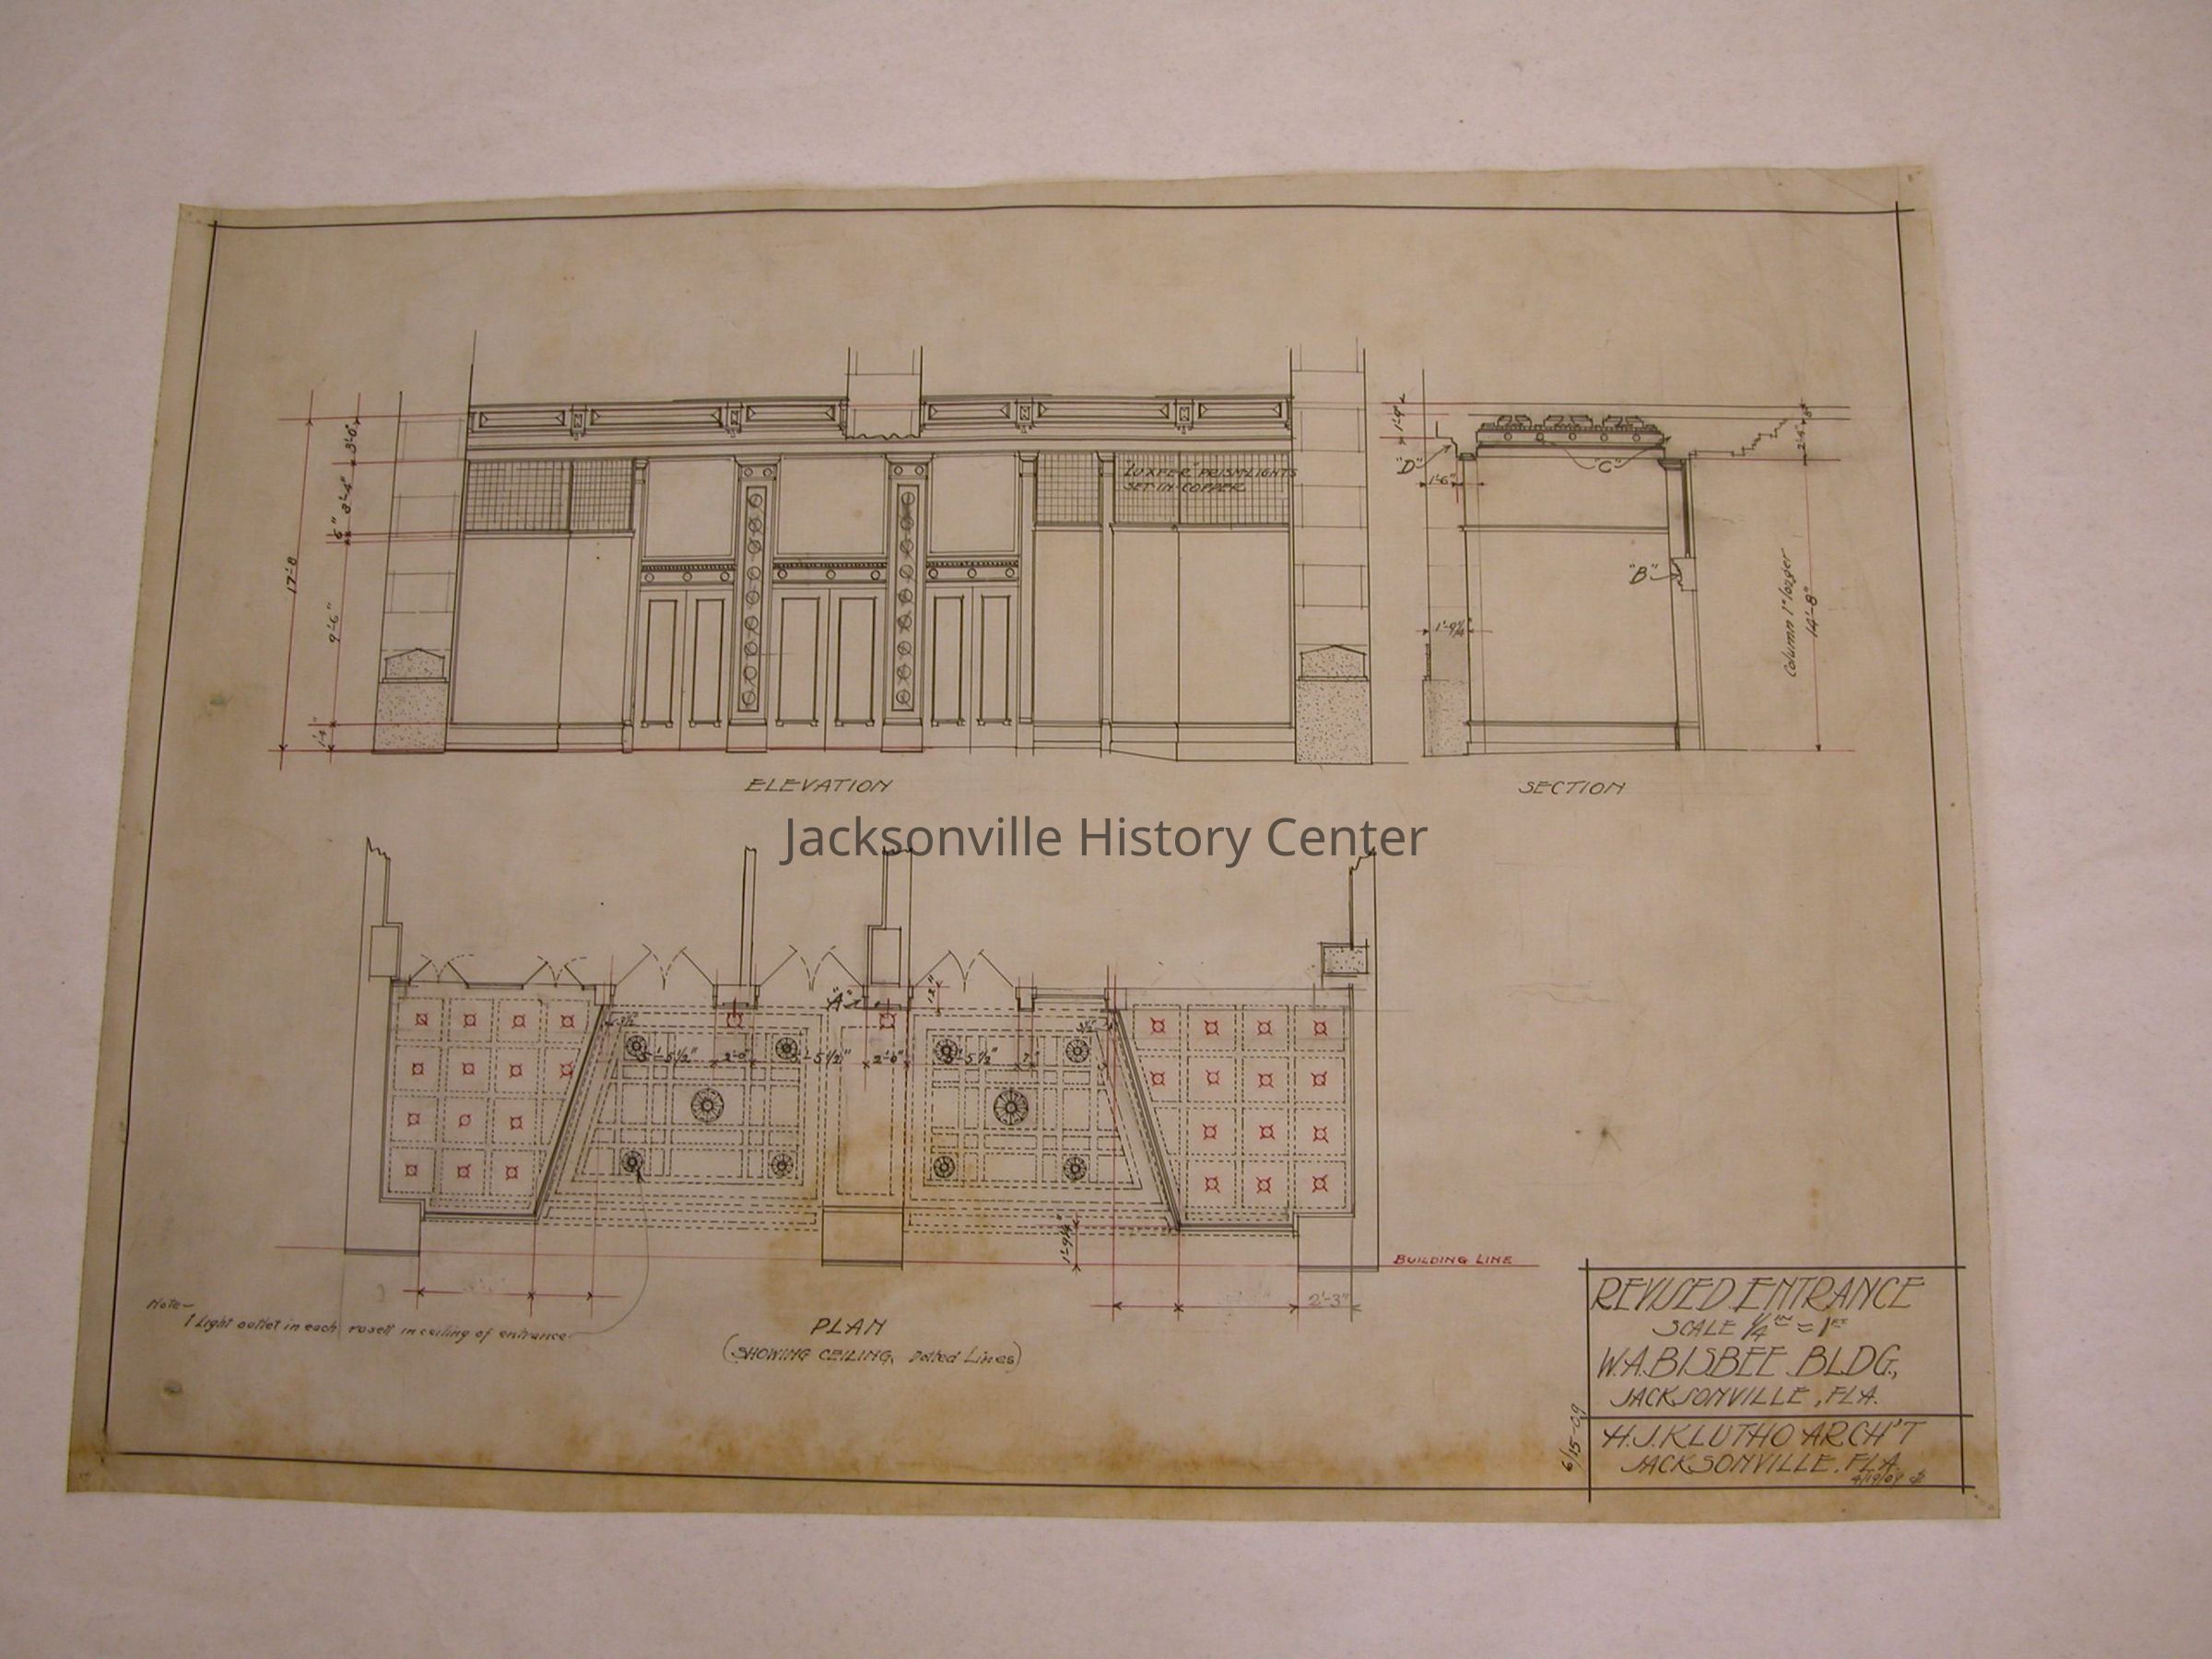 3'-0"
3'-4"
6"
17'-8
9'-6"
1'-4"
"LUXFER" PRISM LIGHTS
SET IN COPPER
ELEVATION
1'-9"
"D"
1'-6"
"C"
"B"
1'-9¼"
Column 1" larger
14'-8"
SECTION
Jacksonville History Center
"A"
12"
5'-5½"
2'-0"
5'-5½"
2'-0"
5'-5½"
7"
1'-9¼"
BUILDING LINE
2'-3"
Note-
1 Light outlet in each rosett in ceiling of entrance
PLAN
(SHOWING CEILING, Dotted Lines)
REVISED ENTRANCE
SCALE ¼ IN = 1 FT
W.A. BISBEE BLDG.,
JACKSONVILLE, FLA.
6/15-09
H.J. KLUTHO ARCH'T
JACKSONVILLE, FLA.